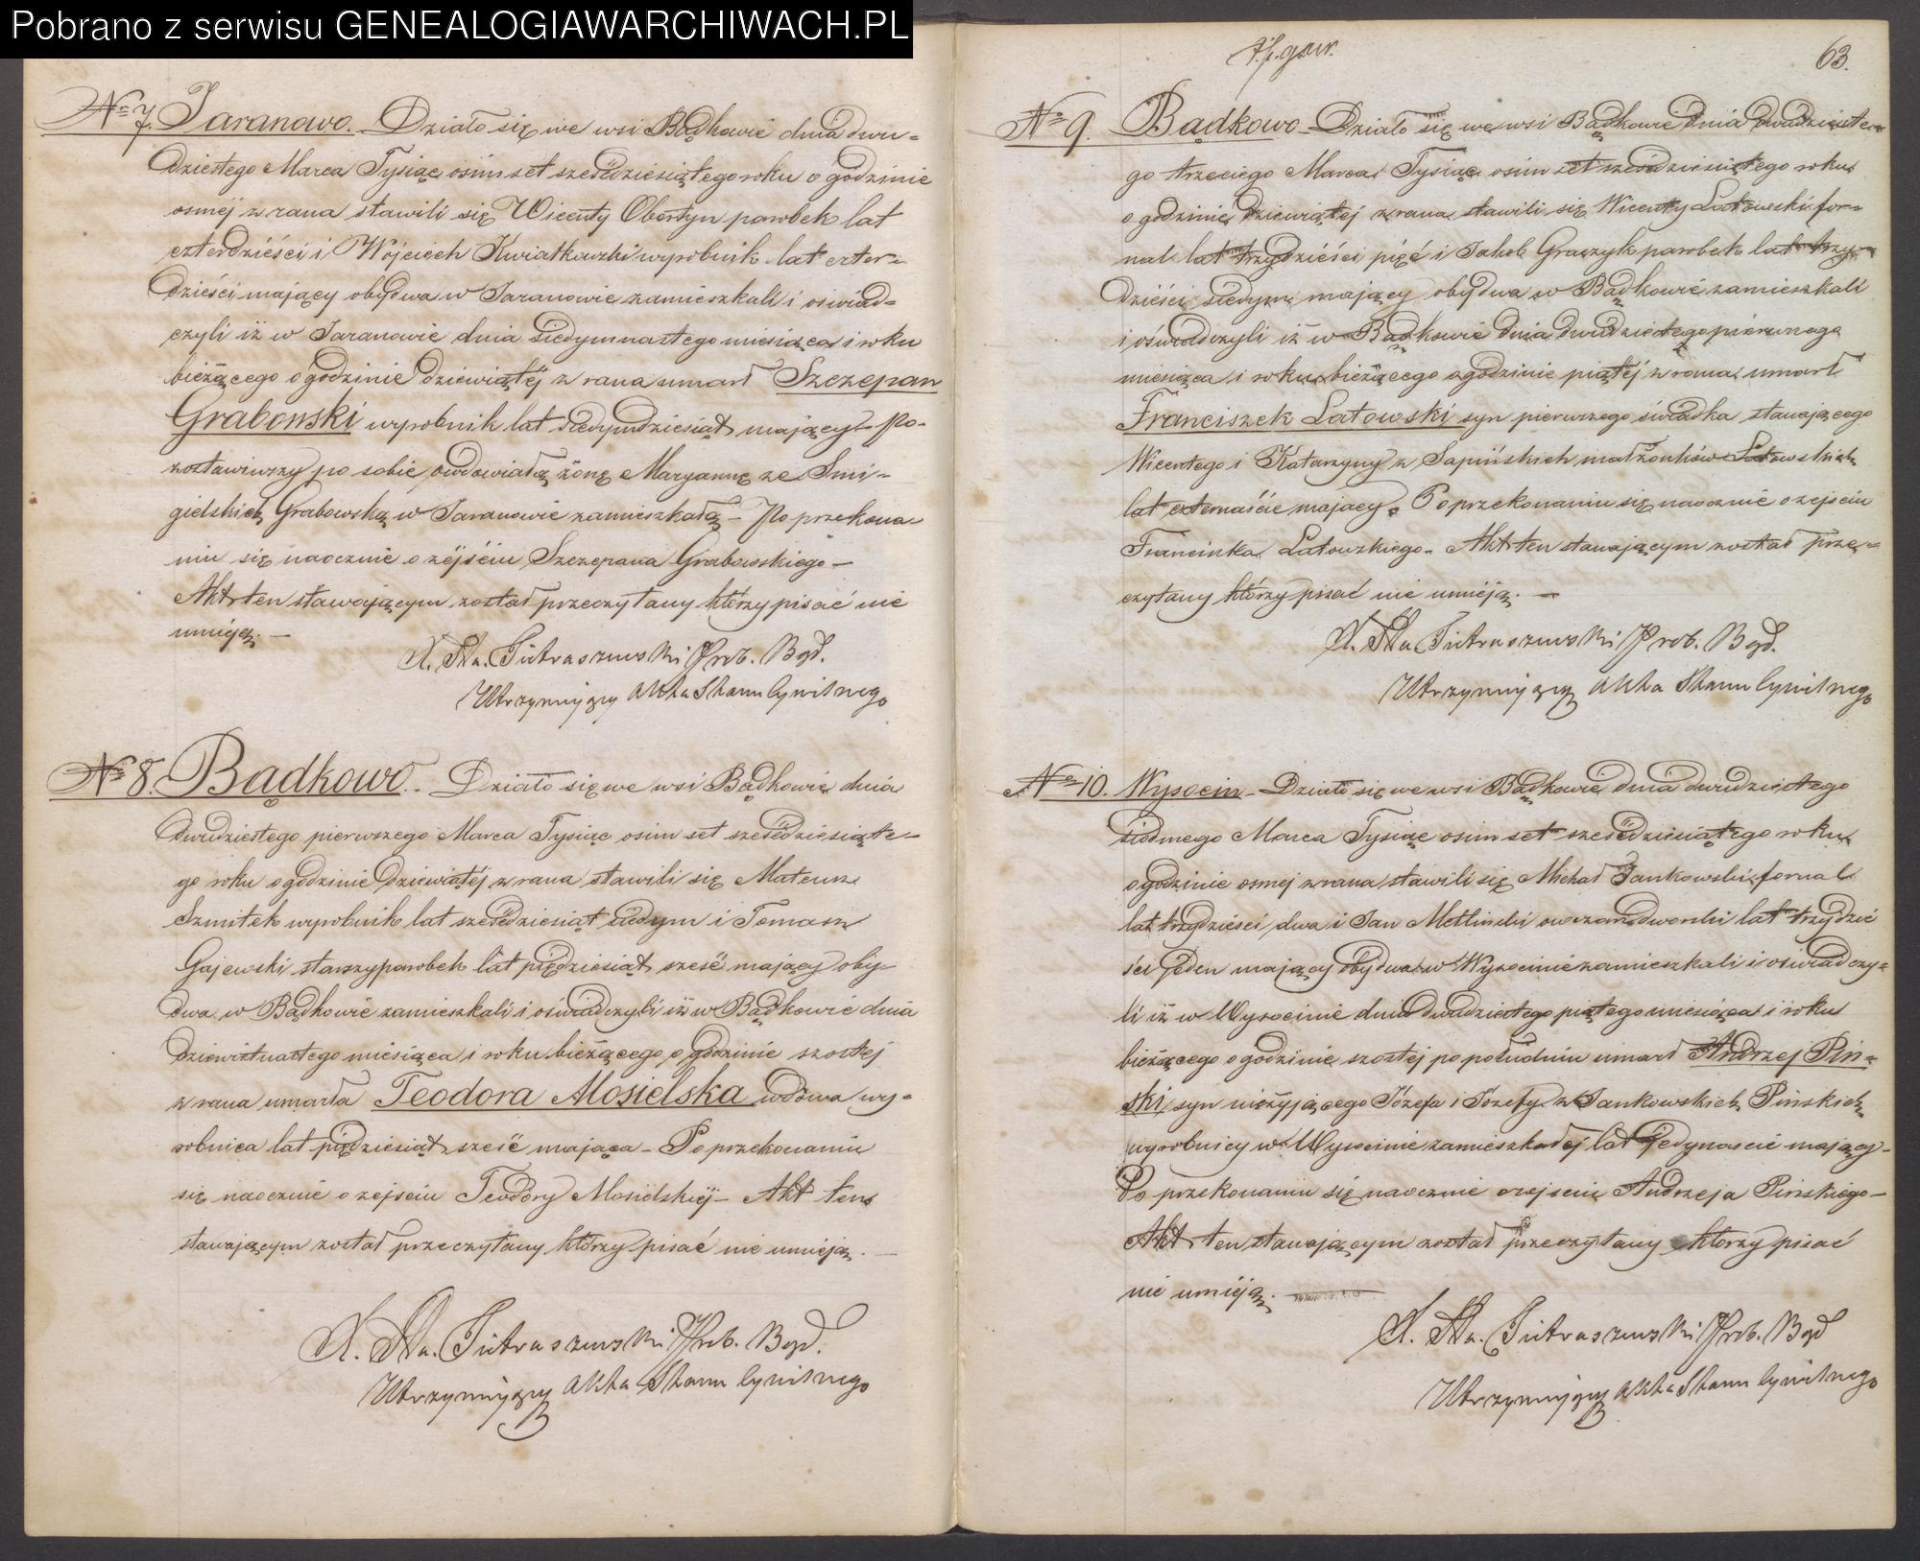 Pobrano z serwisu GENEALOGIAWARCHIWACH.PL
No 7. Jaranowo. Działo się we wsi Bądkowie dnia dwu-
dziestego Marca Tysiąc osimset sześćdziesiątego roku o godzinie
osméj z rana stawili się Wicenty Obertyn parobek lat
czterdzieści i Wojciech Kwiatkowski wyrobnik lat czter-
dzieści mający obydwa w Jaranowie zamieszkali i oswiad-
czyli iż w Jaranowie dnia siedymnastego miesiąca i roku
bieżącego o godzinie dziewiątéj z rana umarł Szczepan
Grabowski wyrobnik lat siedymdziesiąt mający Po-
zostawiwszy po sobie owdowiałą żonę Maryannę ze Smi-
gielskich Grabowską w Jaranowie zamieszkałą - Po przekona
niu się naocznie o zéjściu Szczepana Grabowskiego -
Akt ten stawającym został przeczytany którzy pisać nie
umieją. -
X. Sta. Pietraszewski Prob. Bąd.
Utrzymujący Akta Stanu Cywilnego
No 8. Bądkowo. - Działo się we wsi Bądkowie dnia
dwudziestego pierwszego Marca Tysiąc osim set sześćdziesiąte-
go roku o godzinie dziewiątéj z rana stawili się Mateusz
Szmitek wyrobnik lat sześćdziesiąt siedym i Tomasz
Gajewski starszy parobek lat piędziesiąt sześć mający oby-
dwa w Bądkowie zamieszkali i oświadczyli iż w Bądkowie dnia
dziewietnastego miesiąca i roku bieżącego o godzinie szostéj
z rana umarła Teodora Mosielska wdowa wy-
robnica lat piędziesiąt sześć mająca - Po przekonaniu
się naocznie o zejsciu Teodory Mosielskiéj - Akt ten
stawającym został przeczytany którzy pisać nie umieją. -
X. Sta. Pietraszewski Prob. Bąd.
Utrzymujący Akta Stanu Cywilnego
63.
No 9. Bądkowo - Działo się we wsi Bądkowie dnia dwadzieste-
go trzeciego Marca Tysiąc osim set sześćdziesiątego roku
o godzinie dziewiątéj z rana stawili się Wicenty Latowski for-
nal lat trzydzieści pięć i Jakob Graczyk parobek lat trzy-
dzieści siedym mający obydwa w Bądkowie zamieszkali
i oświadczyli iż w Bądkowie dnia dwudziestego pierwszego
miesiąca i roku bieżącego o godzinie piątéj z rana umarł
Franciszek Latowski syn pierwszego świadka stawającego
Wicentego i Katarzyny z Sapińskich małżonków Latowskich
lat czternaście mający. Po przekonaniu się naocznie o zejsciu
Franciszka Latowskiego - Akt ten stawającym został prze-
czytany którzy pisać nie umieją. -
X. Sta. Pietraszewski Prob. Bąd.
Utrzymujący Akta Stanu Cywilnego
No 10. Wysocin - Działo się we wsi Bądkowie dnia dwudziestego
siodmego Marca Tysiąc osimset sześćdziesiątego roku
o godzinie osmej z rana stawili się Michał Jankowski fornal
lat trzydzieści dwa i Jan Metliński owczarz dworski lat trzydzie
ści jeden mający obydwa w Wysocinie zamieszkali i oświadczy-
li iż w Wysocinie dnia dwadziestego piątego miesiąca i roku
bieżącego o godzinie szostéj po południu umarł Andrzej Piń-
ski syn nieżyjącego Józefa i Józefy z Jankowskich Pińskich
wyrobnicy w Wysocinie zamieszkałej lat jedynaście mający -
Po przekonaniu się naocznie o zejsciu Andrzeja Pińskiego -
Akt ten stawającym został przeczytany którzy pisać
nie umieją.
X. Sta. Pietraszewski Prob. Bąd
Utrzymujący Akta Stanu Cywilnego